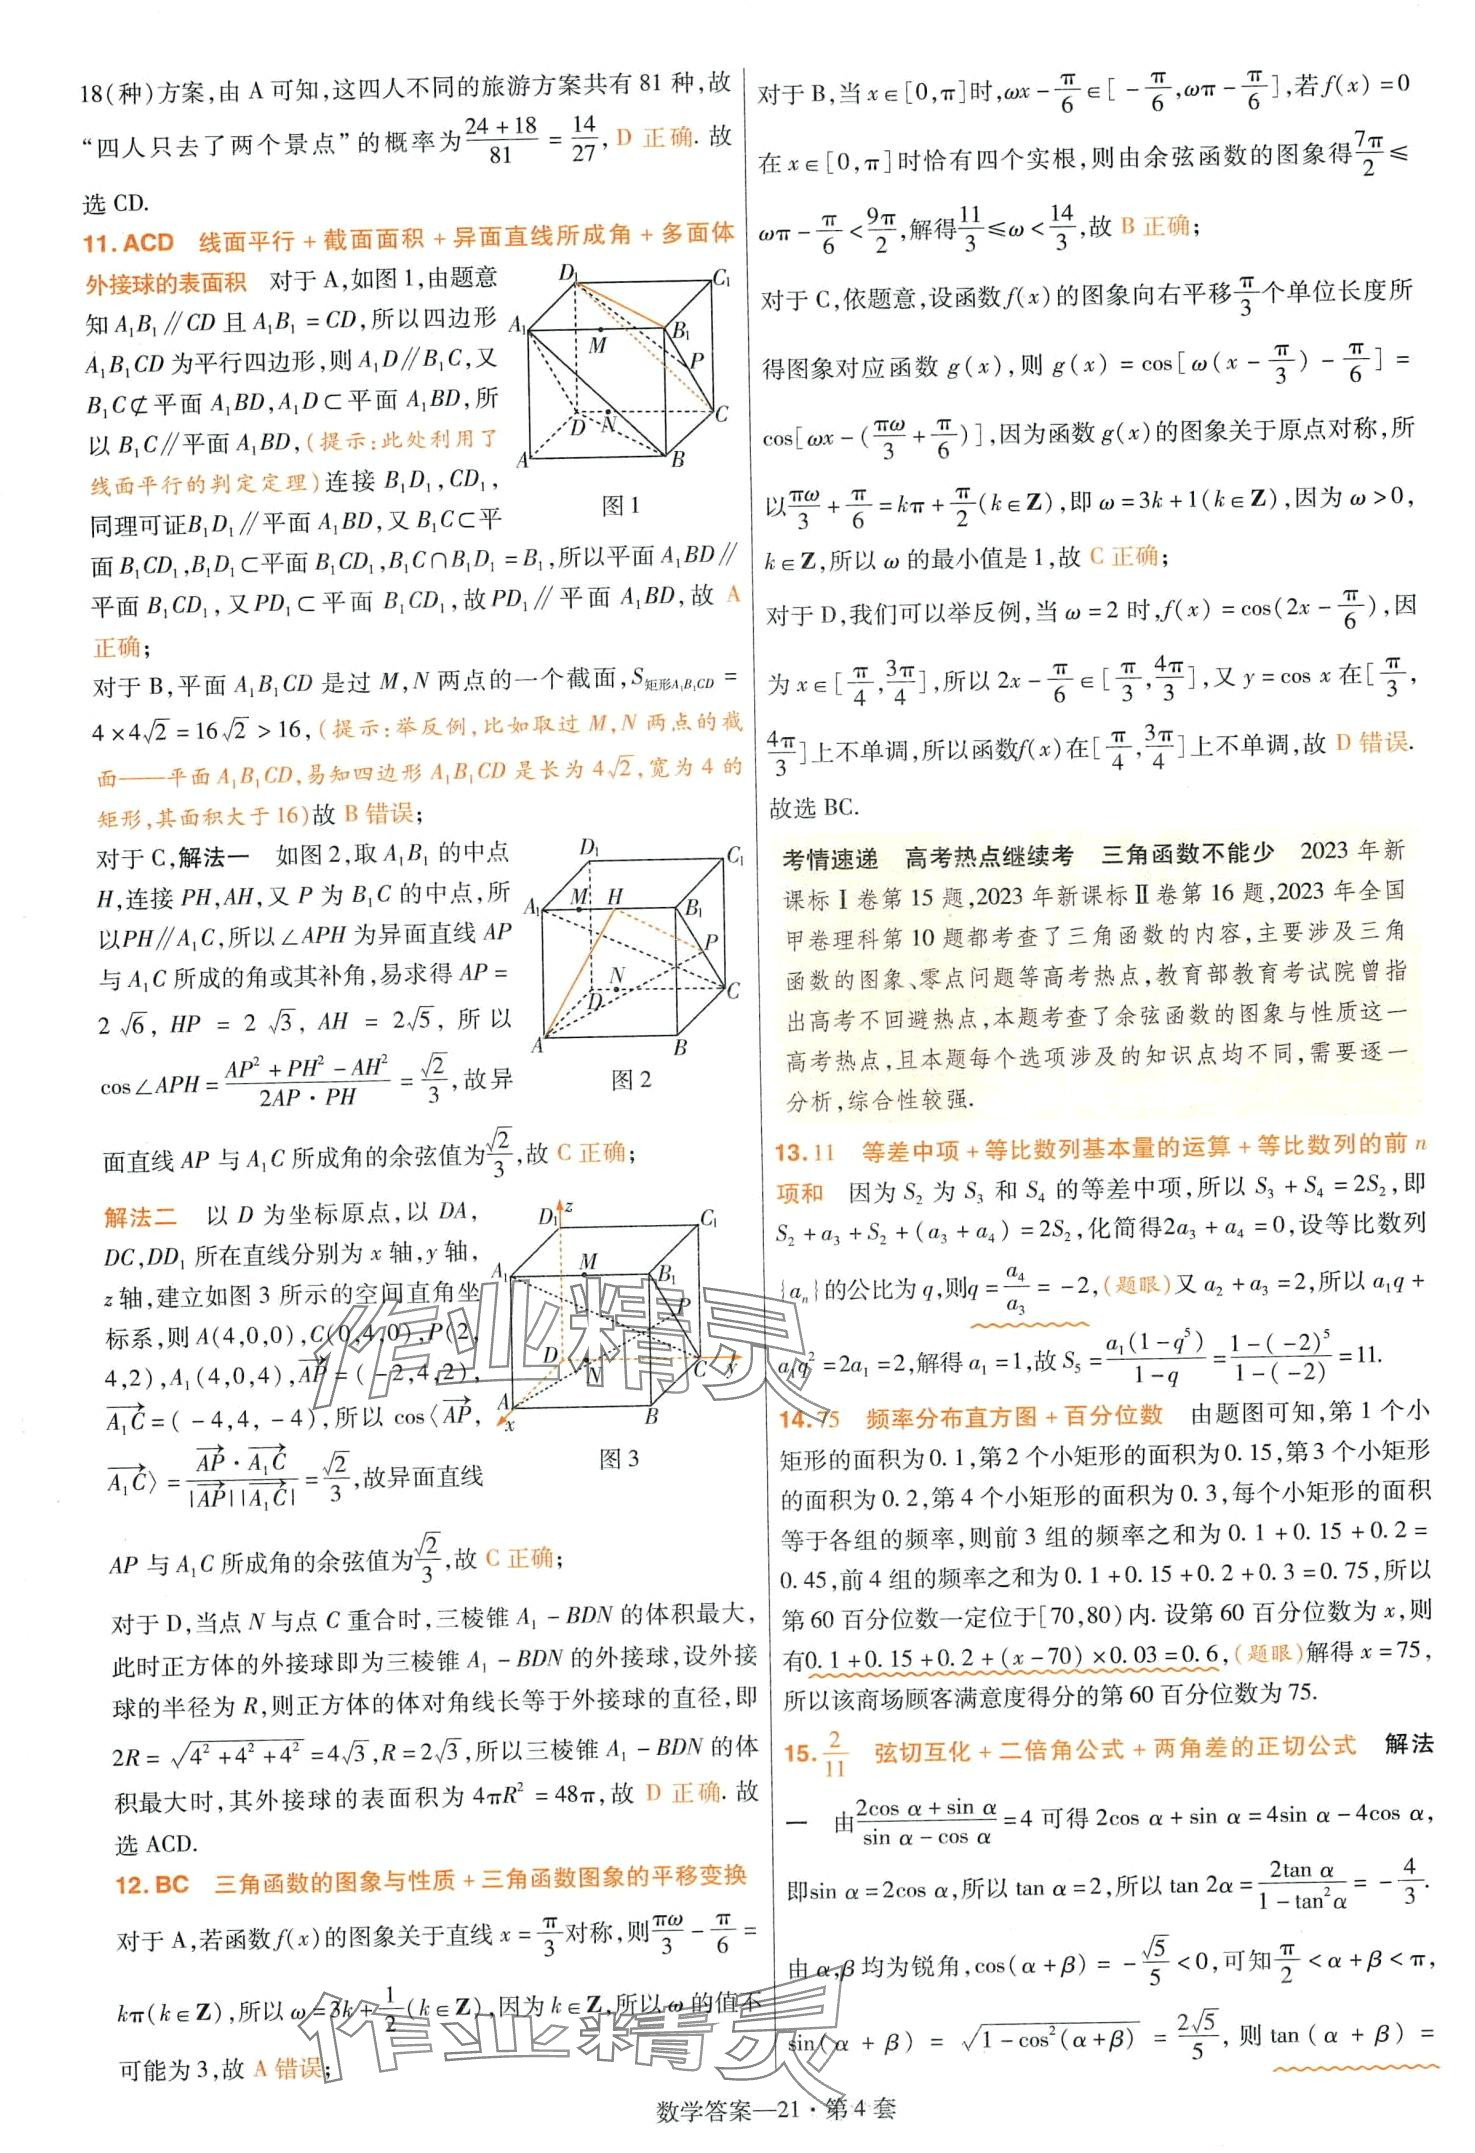 18(种)方案,由 A 可知,这四人不同的旅游方案共有 81 种,故
“四人只去了两个景点”的概率为$\frac{24+18}{81}=\frac{14}{27}$, D 正确. 故
选 CD.
11. ACD 线面平行 + 截面面积 + 异面直线所成角 + 多面体
外接球的表面积 对于 A,如图 1,由题意
知 A₁B₁∥CD 且 A₁B₁ = CD,所以四边形
A₁B₁CD 为平行四边形,则 A₁D∥B₁C,又
B₁C⊄平面 A₁BD,A₁D⊂平面 A₁BD,所
以 B₁C∥平面 A₁BD,(提示:此处利用了
线面平行的判定定理)连接 B₁D₁,CD₁,
同理可证B₁D₁∥平面 A₁BD,又 B₁C⊂平
面 B₁CD₁,B₁D₁⊂平面 B₁CD₁,B₁C∩B₁D₁ = B₁,所以平面 A₁BD∥
平面 B₁CD₁,又PD₁⊂平面 B₁CD₁,故PD₁∥平面 A₁BD,故 A
正确;
D₁ C₁ A₁ M B₁ P D N C A B
图 1
对于 B,平面 A₁B₁CD 是过 M,N 两点的一个截面,$S_{矩形A_1B_1CD}$ =
4×4√2 = 16√2 > 16,(提示:举反例,比如取过 M,N 两点的截
面——平面 A₁B₁CD,易知四边形 A₁B₁CD 是长为 4√2,宽为 4 的
矩形,其面积大于 16)故 B 错误;
对于 C,解法一 如图 2,取 A₁B₁ 的中点
H,连接 PH,AH,又 P 为 B₁C 的中点,所
以PH∥A₁C,所以∠APH 为异面直线 AP
与 A₁C 所成的角或其补角,易求得 AP =
2√6, HP = 2√3, AH = 2√5, 所以
cos∠APH = $\frac{AP^2+PH^2-AH^2}{2AP·PH}=\frac{\sqrt{2}}{3}$,故异
面直线 AP 与 A₁C 所成角的余弦值为$\frac{\sqrt{2}}{3}$,故 C 正确;
D₁ C₁ A₁ M H B₁ P N D C A B
图 2
解法二 以 D 为坐标原点,以 DA,
DC,DD₁ 所在直线分别为 x 轴,y 轴,
z 轴,建立如图 3 所示的空间直角坐
标系,则 A(4,0,0),C(0,4,0),P(2,
4,2),A₁(4,0,4),$\overrightarrow{AP}$ = (-2,4,2),
$\overrightarrow{A_1C}$ = (-4,4,-4),所以 cos⟨$\overrightarrow{AP}$,
$\overrightarrow{A_1C}$⟩ = $\frac{\overrightarrow{AP}·\overrightarrow{A_1C}}{|\overrightarrow{AP}||\overrightarrow{A_1C}|}=\frac{\sqrt{2}}{3}$,故异面直线
AP 与 A₁C 所成角的余弦值为$\frac{\sqrt{2}}{3}$,故 C 正确;
D₁ z C₁ A₁ M B₁ P D N C y A x B
图 3
对于 D,当点 N 与点 C 重合时,三棱锥 A₁ - BDN 的体积最大,
此时正方体的外接球即为三棱锥 A₁ - BDN 的外接球,设外接
球的半径为 R,则正方体的体对角线长等于外接球的直径,即
2R = $\sqrt{4^2+4^2+4^2}$ = 4√3,R = 2√3,所以三棱锥 A₁ - BDN 的体
积最大时,其外接球的表面积为 4πR² = 48π,故 D 正确. 故
选 ACD.
12. BC 三角函数的图象与性质 + 三角函数图象的平移变换
对于 A,若函数 f(x)的图象关于直线 x = $\frac{π}{3}$对称,则$\frac{πω}{3}-\frac{π}{6}$ =
kπ(k∈Z),所以 ω = 3k + $\frac{1}{2}$(k∈Z),因为 k∈Z,所以 ω 的值不
可能为 3,故 A 错误;
对于 B,当 x∈[0,π]时,ωx - $\frac{π}{6}$∈[-$\frac{π}{6}$,ωπ - $\frac{π}{6}$],若 f(x) = 0
在 x∈[0,π]时恰有四个实根,则由余弦函数的图象得$\frac{7π}{2}$≤
ωπ - $\frac{π}{6}$ < $\frac{9π}{2}$,解得$\frac{11}{3}$≤ω<$\frac{14}{3}$,故 B 正确;
对于 C,依题意,设函数 f(x)的图象向右平移$\frac{π}{3}$个单位长度所
得图象对应函数 g(x),则 g(x) = cos[ω(x - $\frac{π}{3}$) - $\frac{π}{6}$] =
cos[ωx - ($\frac{πω}{3}+\frac{π}{6}$)],因为函数 g(x)的图象关于原点对称,所
以$\frac{πω}{3}+\frac{π}{6}$ = kπ + $\frac{π}{2}$(k∈Z),即 ω = 3k + 1(k∈Z),因为 ω > 0,
k∈Z,所以 ω 的最小值是 1,故 C 正确;
对于 D,我们可以举反例,当 ω = 2 时,f(x) = cos(2x - $\frac{π}{6}$),因
为 x∈[$\frac{π}{4}$,$\frac{3π}{4}$],所以 2x - $\frac{π}{6}$∈[$\frac{π}{3}$,$\frac{4π}{3}$],又 y = cos x 在[$\frac{π}{3}$,
$\frac{4π}{3}$]上不单调,所以函数f(x)在[$\frac{π}{4}$,$\frac{3π}{4}$]上不单调,故 D 错误.
故选 BC.
考情速递 高考热点继续考 三角函数不能少 2023 年新
课标Ⅰ卷第 15 题,2023 年新课标Ⅱ卷第 16 题,2023 年全国
甲卷理科第 10 题都考查了三角函数的内容,主要涉及三角
函数的图象、零点问题等高考热点,教育部教育考试院曾指
出高考不回避热点,本题考查了余弦函数的图象与性质这一
高考热点,且本题每个选项涉及的知识点均不同,需要逐一
分析,综合性较强.
13. 11 等差中项 + 等比数列基本量的运算 + 等比数列的前 n
项和 因为 S₂ 为 S₃ 和 S₄ 的等差中项,所以 S₃ + S₄ = 2S₂,即
S₂ + a₃ + S₂ + (a₃ + a₄) = 2S₂,化简得2a₃ + a₄ = 0,设等比数列
{aₙ}的公比为 q,则q = $\frac{a_4}{a_3}$ = -2,(题眼)又 a₂ + a₃ = 2,所以 a₁q +
a₁q² = 2a₁ = 2,解得 a₁ = 1,故 S₅ = $\frac{a_1(1-q^5)}{1-q}=\frac{1-(-2)^5}{1-(-2)}$ = 11.
14. 75 频率分布直方图 + 百分位数 由题图可知,第 1 个小
矩形的面积为 0.1,第 2 个小矩形的面积为 0.15,第 3 个小矩形
的面积为 0.2,第 4 个小矩形的面积为 0.3,每个小矩形的面积
等于各组的频率,则前 3 组的频率之和为 0.1 + 0.15 + 0.2 =
0.45,前 4 组的频率之和为 0.1 + 0.15 + 0.2 + 0.3 = 0.75,所以
第 60 百分位数一定位于[70,80)内. 设第 60 百分位数为 x,则
有0.1 + 0.15 + 0.2 + (x - 70) × 0.03 = 0.6,(题眼)解得 x = 75,
所以该商场顾客满意度得分的第 60 百分位数为 75.
15. $\frac{2}{11}$ 弦切互化 + 二倍角公式 + 两角差的正切公式 解法
一 由$\frac{2\cos α+\sin α}{\sin α-\cos α}$ = 4 可得 2cos α + sin α = 4sin α - 4cos α,
即sin α = 2cos α,所以 tan α = 2,所以 tan 2α = $\frac{2\tan α}{1-\tan^2α}$ = -$\frac{4}{3}$.
由 α,β均为锐角,cos(α + β) = -$\frac{\sqrt{5}}{5}$ < 0,可知$\frac{π}{2}$ < α + β < π,
sin(α + β) = $\sqrt{1-\cos^2(α+β)}$ = $\frac{2\sqrt{5}}{5}$,则 tan(α + β) =
作业精灵
作业精灵
数学答案—21·第 4 套